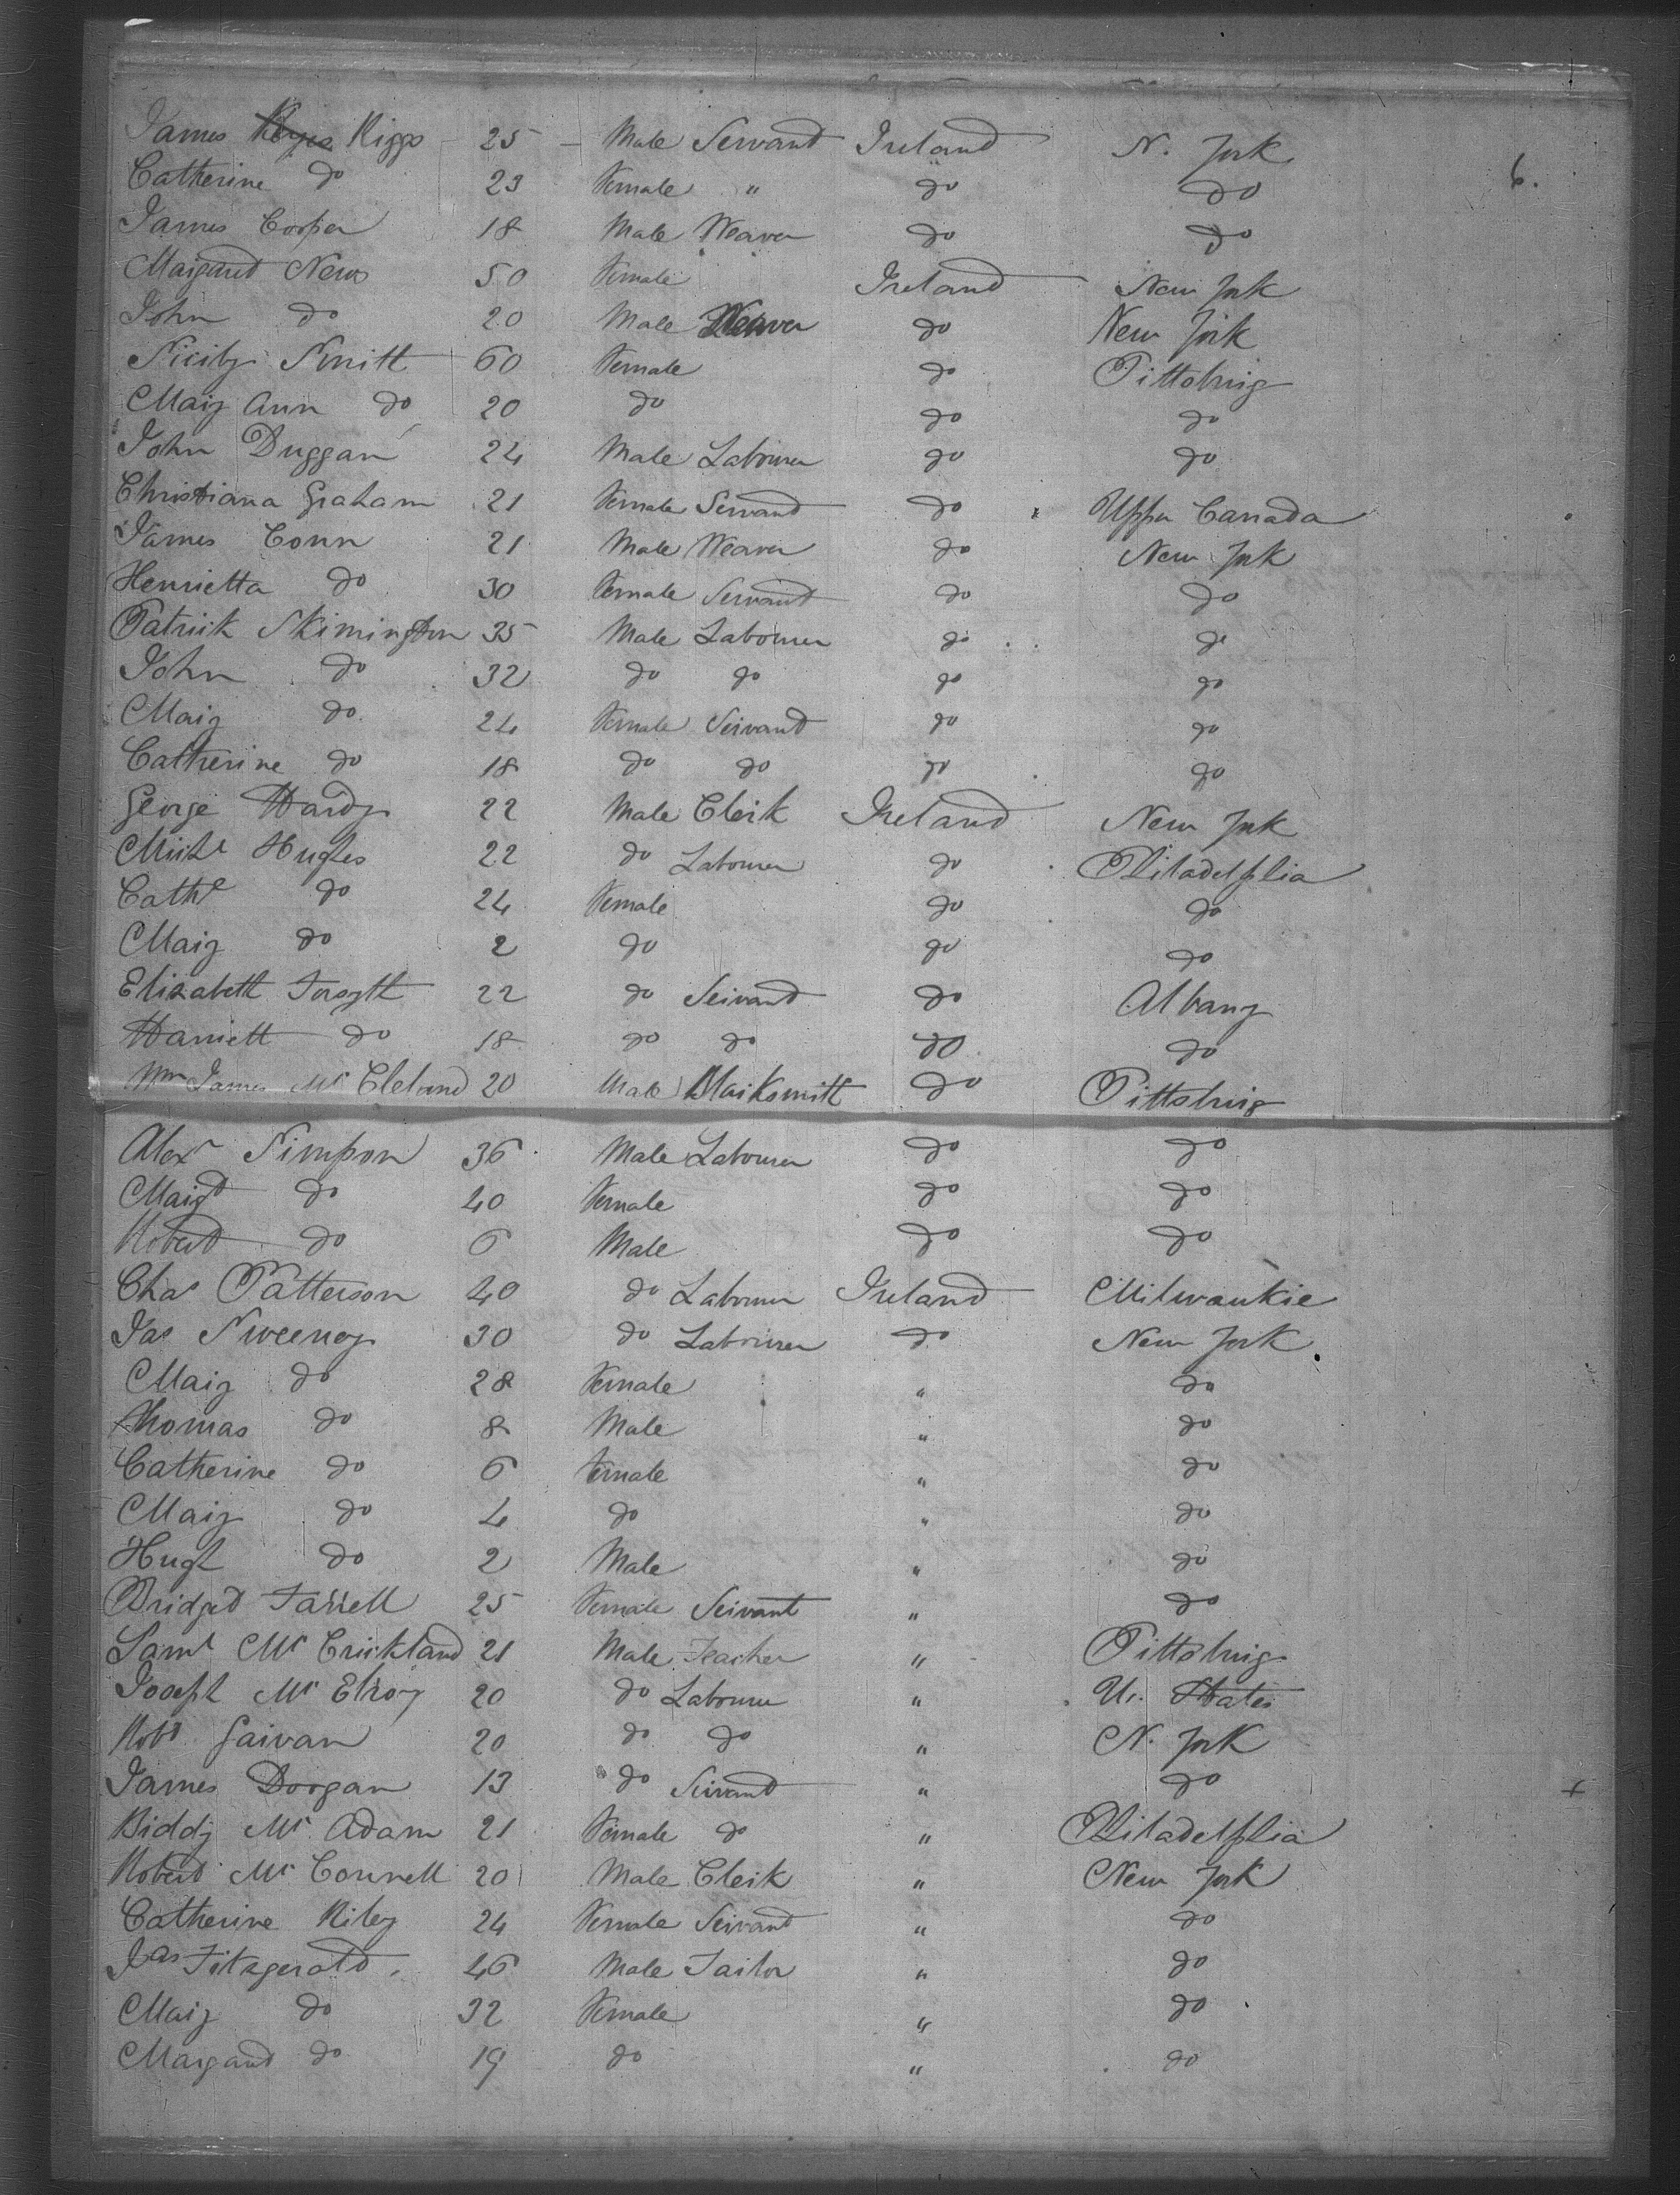 James Riggs 25 Male Servant Ireland N. York
6.
Catherine do 23 Female " do do
James Cooper 18 Male Weaver do do
Margaret News 50 Female Ireland New York
John do 20 Male Weaver do New York
Sicily Smith 60 Female do Pittsburg
Mary Ann do 20 do do do
John Duggan 24 Male Labourer do do
Christiana Graham 21 Female Servant do Upper Canada
James Conn 21 Male Weaver do New York
Henrietta do 30 Female Servant do do
Patrick Skimington 35 Male Labourer do do
John do 32 do do do do
Mary do 24 Female Servant do do
Catherine do 18 do do do do
George Hardy 22 Male Clerk Ireland New York
Michl Hughes 22 do Labourer do Philadelphia
Cathe do 24 Female do do
Mary do 2 do do do
Elizabeth Forsyth 22 do Servant do Albany
Harriett do 18 do do do do
Wm James Mc Cleland 20 Male Blacksmith do Pittsburg
Alexr Simpson 36 Male Labourer do do
Margt do 40 Female do do
Robert do 6 Male do do
Chas Patterson 40 do Labourer Ireland Milwaukie
Jas Sweeney 30 do Labourer do New York
Mary do 28 Female " do
Thomas do 8 Male " do
Catherine do 6 Female " do
Mary do 4 do " do
Hugh do 2 Male " do
Bridget Farrell 25 Female Servant " do
Saml Mc Crickland 21 Male Teacher " Pittsburg
Joseph Mc Elroy 20 do Labourer " U. States
Robt Garvan 20 do do " N. York
James Dorgan 13 do Servant " do
Biddy Mc Adam 21 Female do " Philadelphia
Robert Mc Connell 20 Male Clerk " New York
Catherine Riley 24 Female Servant " do
Jas Fitzgerald 46 Male Tailor " do
Mary do 32 Female " do
Margaret do 19 do " do